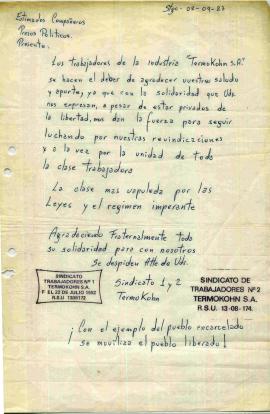 Stgo - 08-09-87
Estimados Compañeros
Presos Políticos.
Presente.
Los trabajadores de la industria "TermoKohn S.A."
se hacen el deber de agradecer vuestros saludo
y aporte, ya que con la solidaridad que Uds.
nos expresan, a pesar de estar privados de
la libertad, nos dan la fuerza para seguir
luchando por nuestras reivindicaciones
y a la vez por la unidad de toda
la clase trabajadora
La clase mas vapuleda por las
Leyes y el regimen imperante
Agradeciendo Fraternalmente toda
su solidaridad para con nosotros
Se despiden Atte de Uds.
SINDICATO
TRABAJADORES Nº 1
TERMOKOHN S.A.
F EL 22 DE JULIO 1952
R.S.U
Sindicato 1 y 2
TermoKohn
SINDICATO DE
TRABAJADORES Nº 2
TERMOKOHN S.A.
R.S.U. 13-08-174.
¡Con el ejemplo del pueblo encarcelado
se moviliza el pueblo liberado!